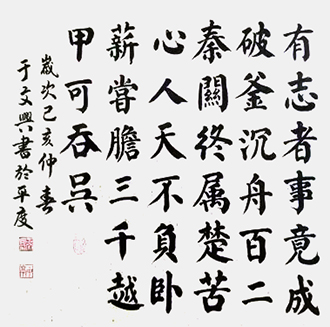 有志者事竟成
破釜沉舟百二
秦關终属楚苦
心人天不负卧
薪嘗膽三千越
甲可吞吴
歲次己亥仲春
于文興書於平度